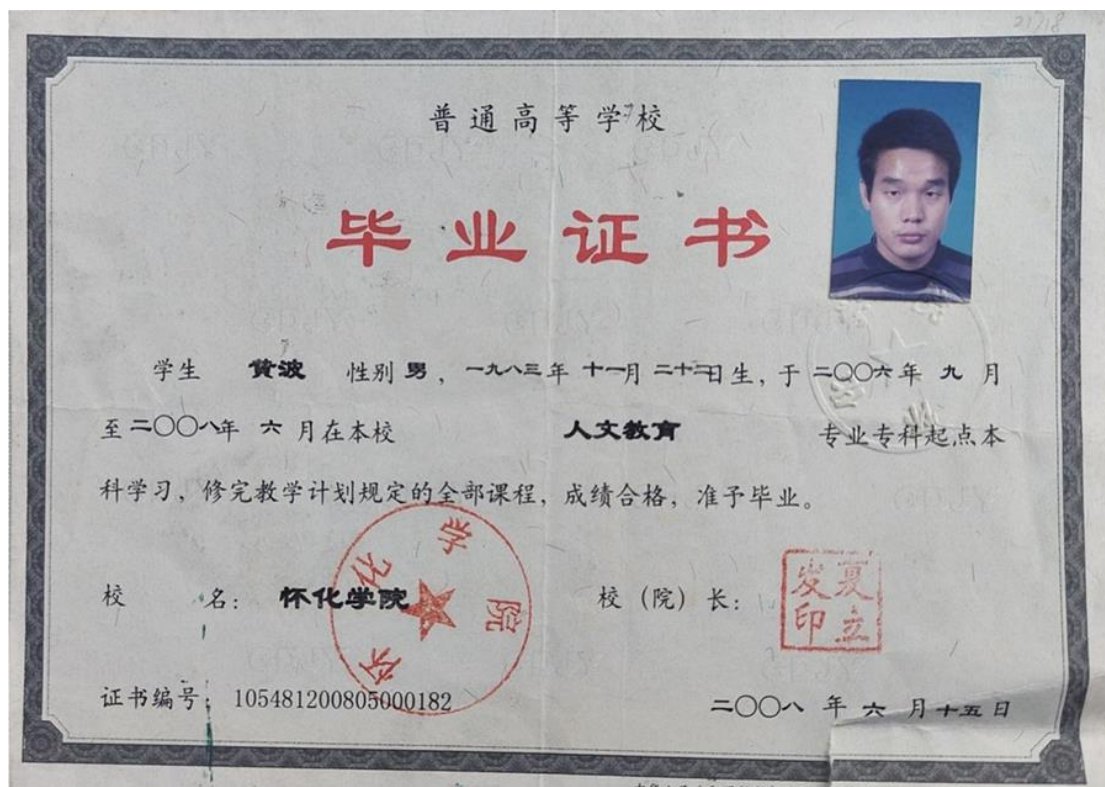 21718
普通高等学校
毕业证书
学生 黄波 性别 男，一九八三年 十一月 二十二日生，于 二〇〇六年 九 月
至二〇〇八年 六 月在本校 人文教育 专业专科起点本
科学习，修完教学计划规定的全部课程，成绩合格，准予毕业。
校 名：怀化学院 校（院）长：
怀化学院
夏立发印
证书编号：105481200805000182 二〇〇八 年 六 月 十五 日